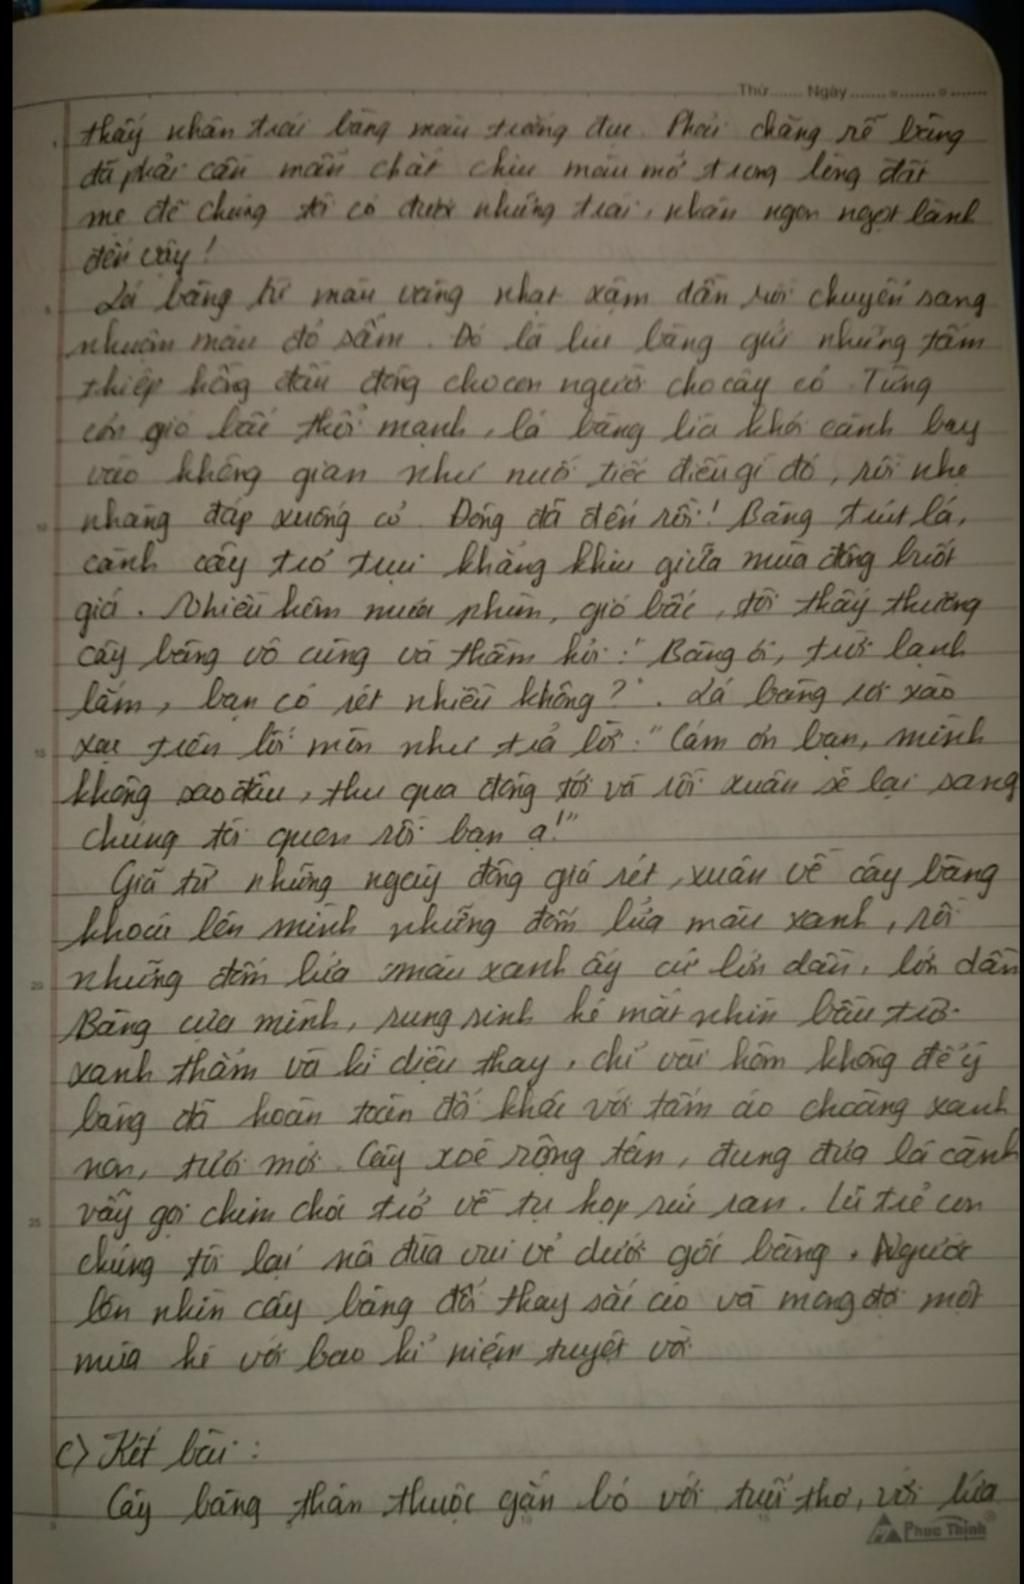 Thứ...... Ngày.......o.......o.......
thấy nhân trái bàng màu trắng đục. Phải chăng rễ bàng
đã phải cần mẫn chắt chiu màu mỡ trong lòng đất
mẹ để chúng tôi có được những trái, nhân ngon ngọt lành
đến vậy!
Lá bàng từ màu vàng nhạt xậm dần rồi chuyển sang
nhuốm màu đỏ sẫm. Đó là lúc bàng gửi những tấm
thiệp hồng đầu đông cho con người cho cây cỏ. Từng
cơn gió bấc thổi mạnh, lá bàng lìa khỏi cành bay
vào không gian như nuối tiếc điều gì đó, rồi nhẹ
nhàng đáp xuống cỏ. Đông đã đến rồi! Bàng trút lá,
cành cây trơ trụi khẳng khiu giữa mùa đông buốt
giá. Nhiều hôm mưa phùn, gió bấc, tôi thấy thương
cây bàng vô cùng và thầm hỏi: "Bàng ơi, trời lạnh
lắm, bạn có rét nhiều không?". Lá bàng rơi xào
xạc trên lối mòn như trả lời: "Cám ơn bạn, mình
không sao đâu, thu qua đông tới và rồi xuân sẽ lại sang
chúng tôi quen rồi bạn ạ!"
Giã từ những ngày đông giá rét, xuân về cây bàng
khoác lên mình những đốm lửa màu xanh, rồi
những đốm lửa màu xanh ấy cứ lớn dần, lớn dần
Bàng cựa mình, rung rinh hé mắt nhìn bầu trời
xanh thẳm và kì diệu thay, chỉ vài hôm không để ý
bàng đã hoàn toàn đổi khác với tấm áo choàng xanh
non, tươi mới. Cây xoè rộng tán, đung đưa lá cành
vẫy gọi chim chóc trở về tụ họp ríu ran. Lũ trẻ con
chúng tôi lại nô đùa vui vẻ dưới gốc bàng. Người
lớn nhìn cây bàng đổi thay sắc áo và mong đợi một
mùa hè với bao kỉ niệm tuyệt vời
c) Kết bài:
Cây bàng thân thuộc gắn bó với tuổi thơ, với lứa
Phuc Thinh